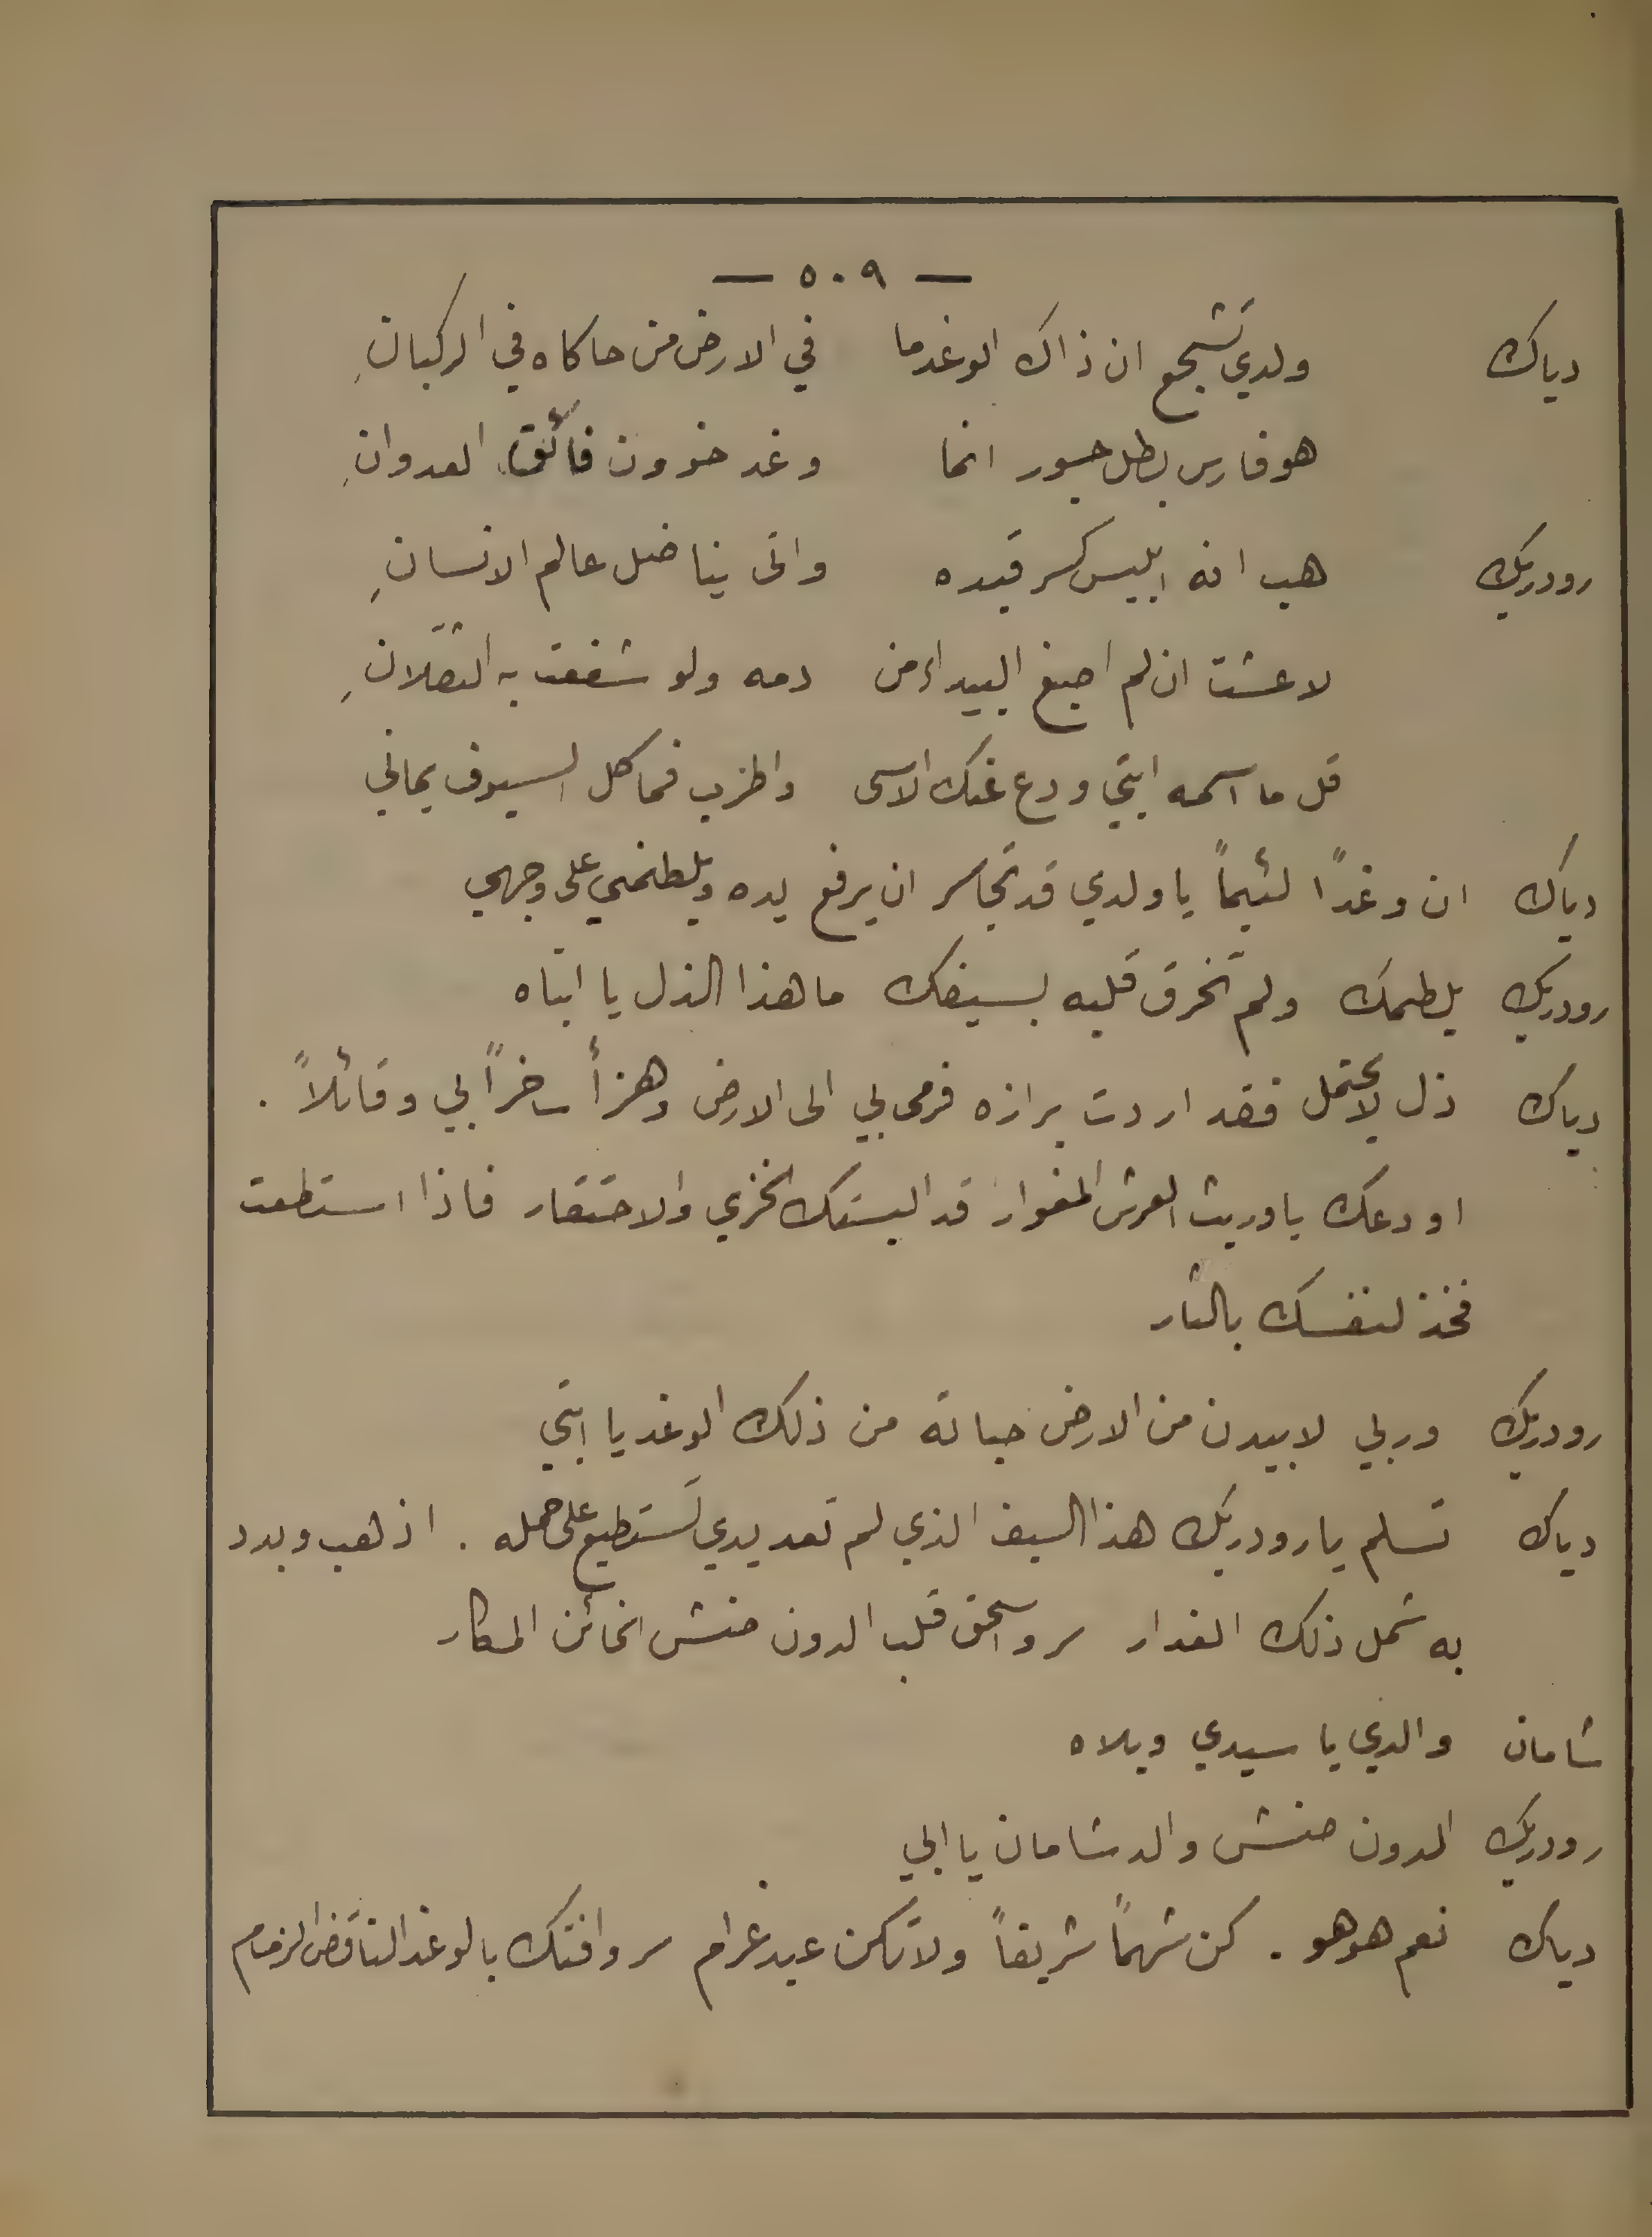 — ٥٠٩ —
دياك ولدي تَشجع ان ذاك الوغد ما في الارض من حاكاه في الركبانِ
هو فارس بطل جسور انما وغد خؤون فائق العدوانِ
رودريك هب انه ابليس كسر قيده واتى يناضل عالم الانسانِ
لا عشت ان لم اصبغ البيداء من دمه ولو شفعت به الثقلانِ
قل ما اسمه ابتي ودع عنك الاسى واطرب فما كل السيوف يماني
دياك ان وغداً لئيماً يا ولدي قد تجاسر ان يرفع يده ويلطمني على وجهي
رودريك يلطمك ولم تخرق قلبه بسيفك ما هذا الذل يا ابتاه
دياك ذل لا يحتمل فقد اردت برازه فرمى بي الى الارض وهزأ ساخراً بي وقائلاً .
اودعك يا وريث العرش المغوار قد البستك الخزي والاحتقار فاذا استطعت
فخذ لنفسك بالثار
رودريك وربي لابيدن من الارض حياته من ذلك الوغد يا ابتي
دياك تسلم يا رودريك هذا السيف الذي لم تعد يدي تستطيع على حمله . اذهب وبدد
به شمل ذلك الغدار سر واسحق قلب الدون صنش الخائن المكار
شامان والدي يا سيدي ويلاه
رودريك الدون صنش والد شامان يا ابي
دياك نعم هو هو . كن شهماً شريفاً ولا تكن عبد غرام سر وافتك بالوغد الناقض الزمام